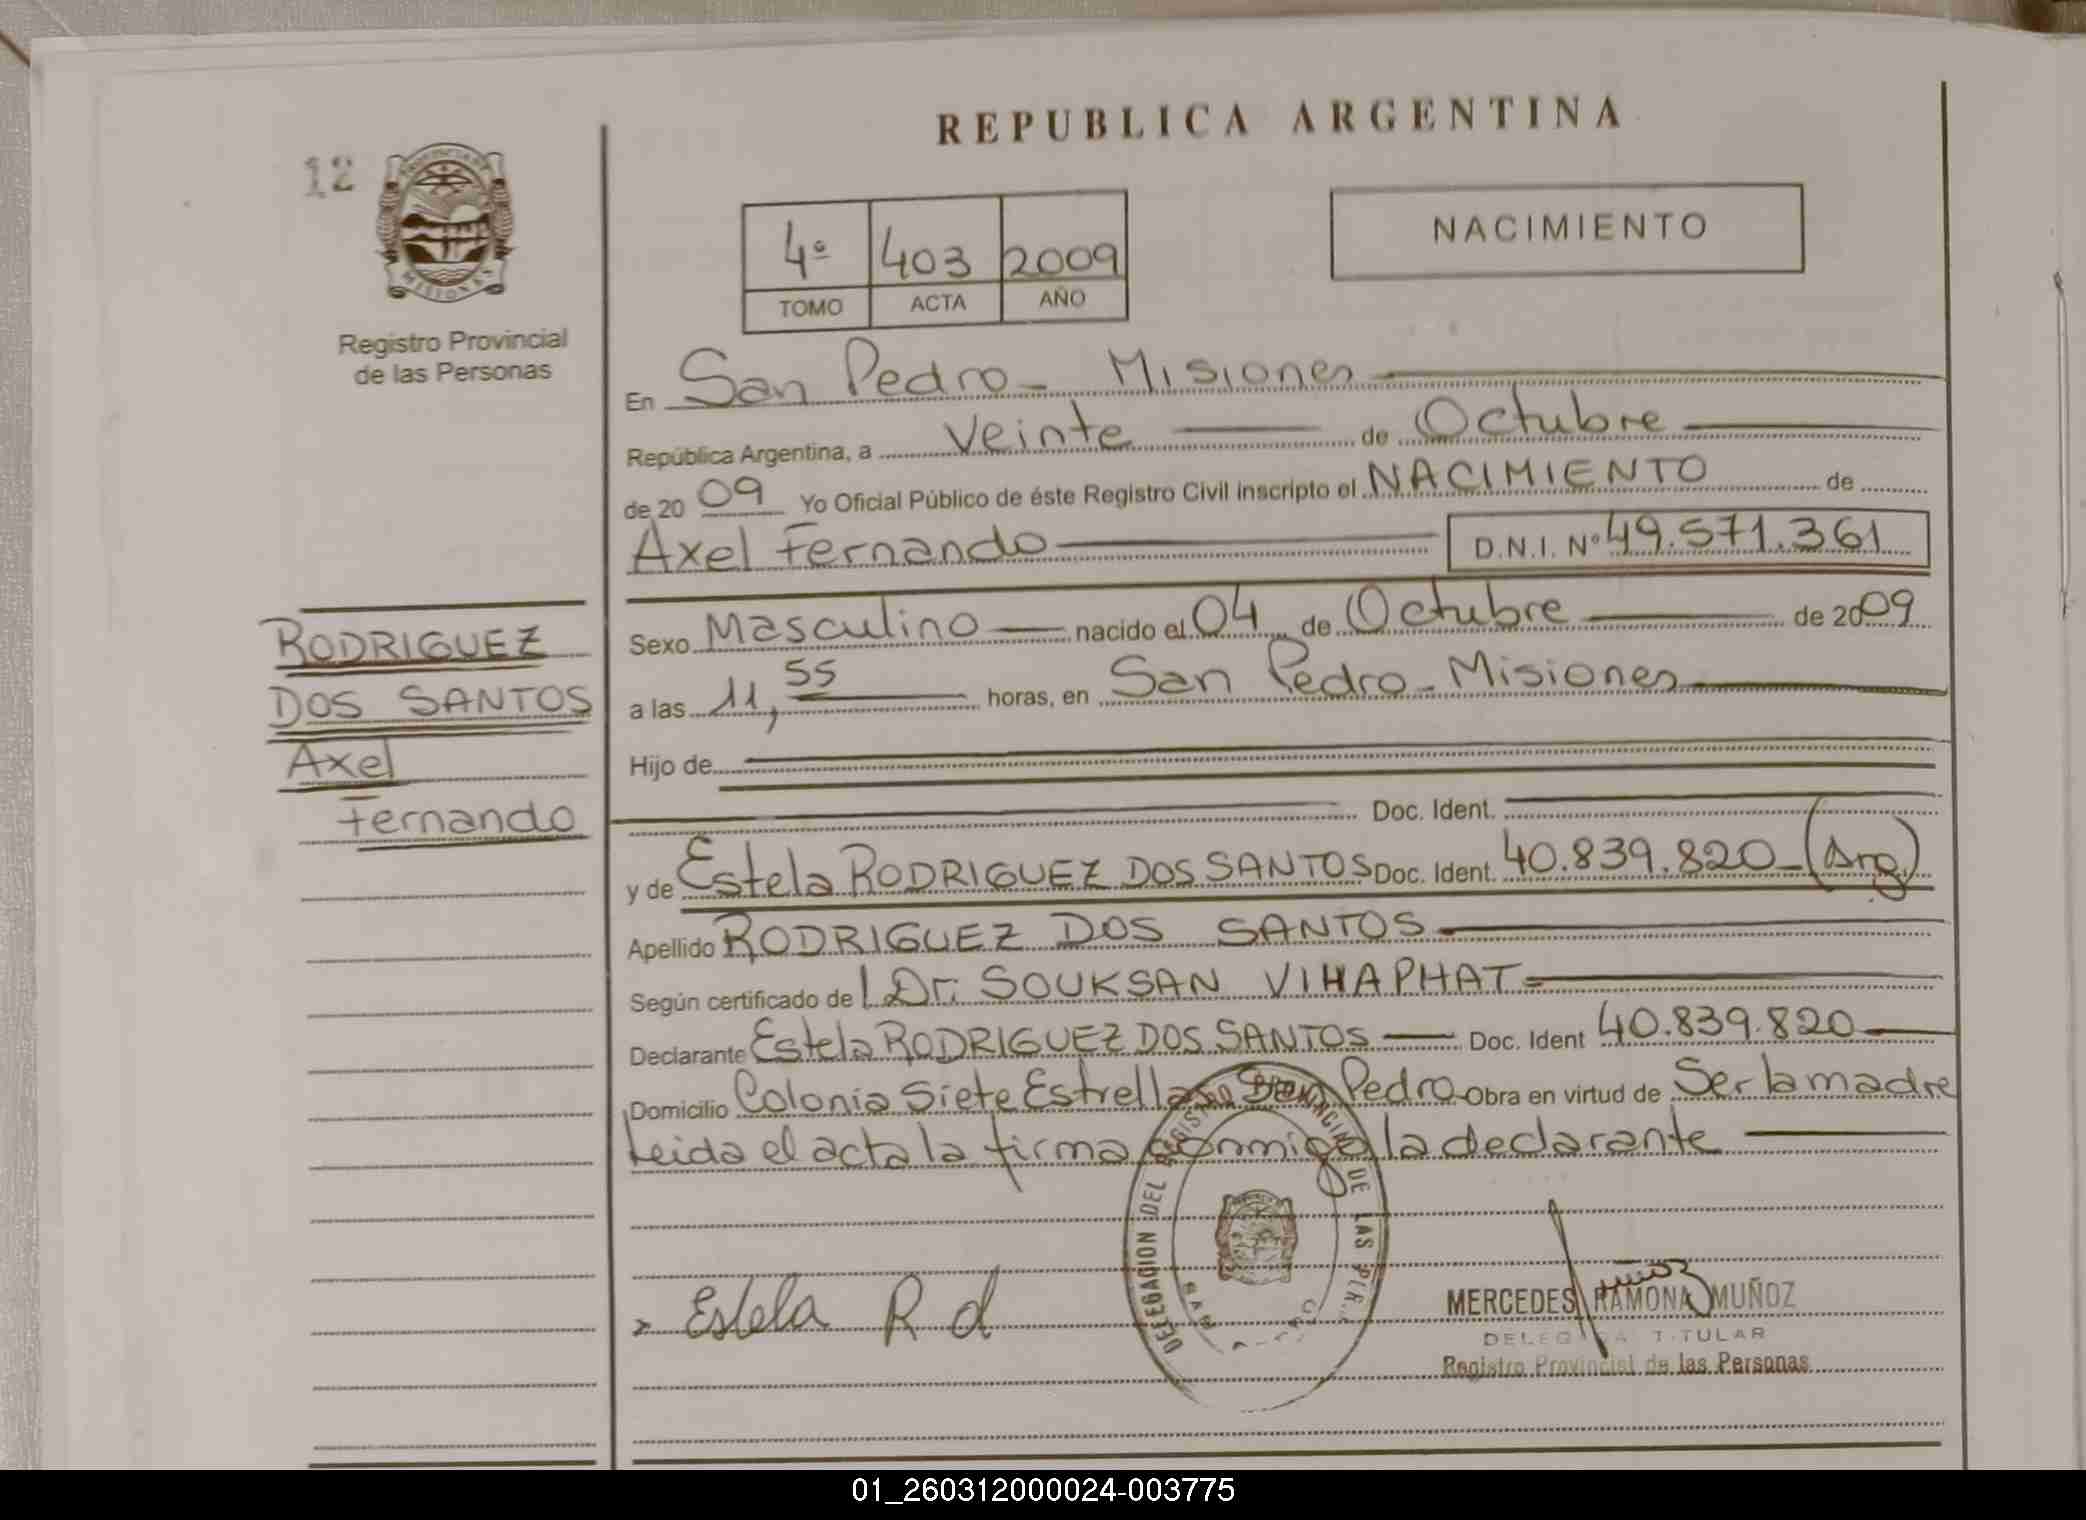 REPUBLICA ARGENTINA
12
PROVINCIA DE
MISIONES
Registro Provincial
de las Personas
4º 403 2009
TOMO ACTA AÑO
NACIMIENTO
En San Pedro - Misiones
República Argentina, a veinte de Octubre
de 2009 Yo Oficial Público de éste Registro Civil inscripto el NACIMIENTO de
Axel Fernando D.N.I. Nº 49.571.361
Sexo Masculino nacido el 04 de Octubre de 2009
a las 11,55 horas, en San Pedro - Misiones
Hijo de
Doc. Ident.
y de Estela RODRIGUEZ DOS SANTOS Doc. Ident. 40.839.820 - (Arg)
Apellido RODRIGUEZ DOS SANTOS
Según certificado de Dr. SOUKSAN VIHAPHAT
Declarante Estela RODRIGUEZ DOS SANTOS Doc. Ident 40.839.820
Domicilio Colonia Siete Estrellas San Pedro Obra en virtud de Ser la madre
Leida el acta la firma conmigo la declarante
RODRIGUEZ
DOS SANTOS
Axel
Fernando
Estela R d
DELEGACION DEL REGISTRO PROVINCIAL DE LAS PER
SAN
MERCEDES RAMONA MUÑOZ
TITULAR
Registro Provincial de las Personas
01_260312000024-003775